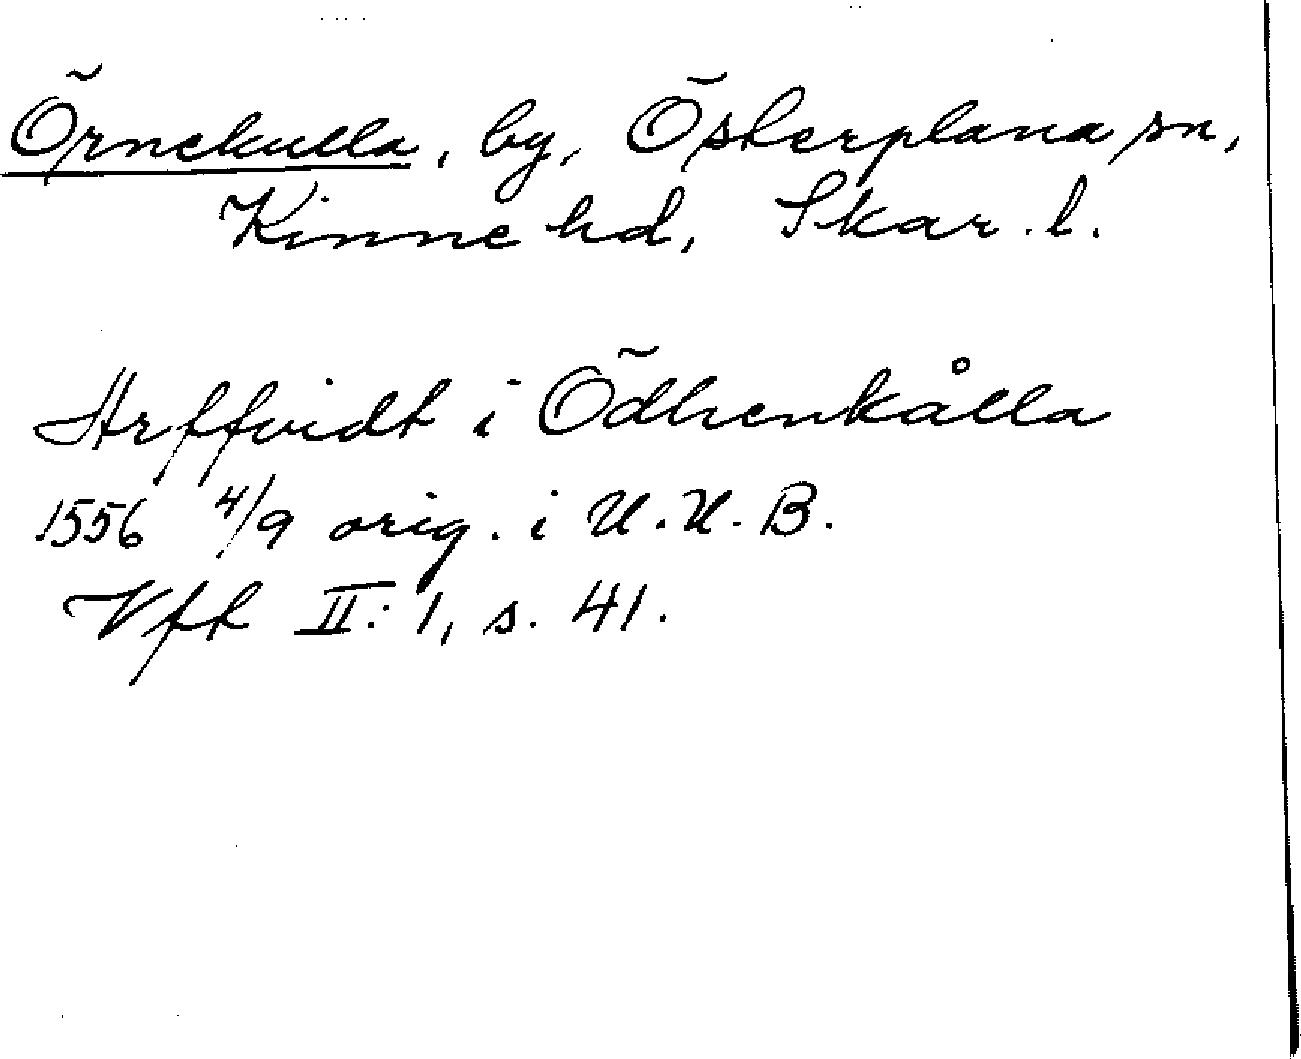 Örnekulla, by, Österplana sn,
Kinne hd, Skar. l.
Arffvidt i Ödhenkålla
1556 4/9 orig. i U.U.B.
Vft II: 1, s. 41.